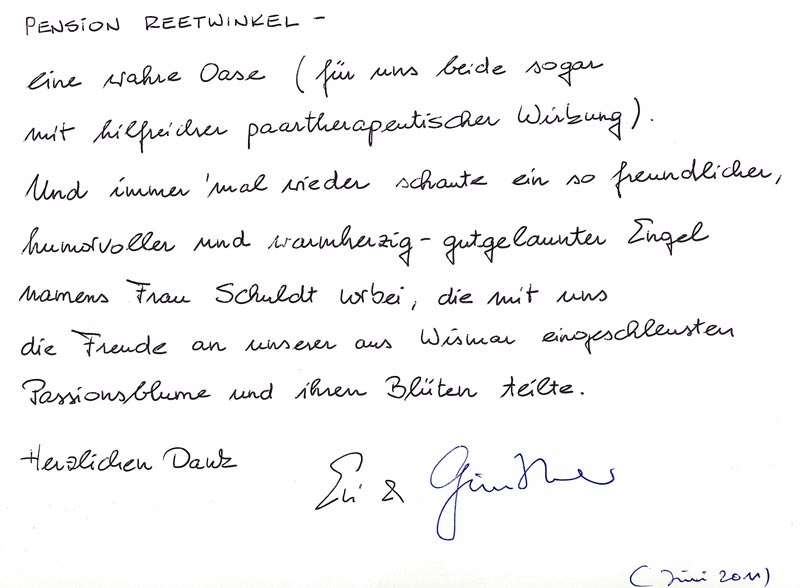 PENSION REETWINKEL –
eine wahre Oase (für uns beide sogar
mit hilfreicher paartherapeutischer Wirkung).
Und immer 'mal wieder schaute ein so freundlicher,
humorvoller und warmherzig - gutgelaunter Engel
namens Frau Schuldt vorbei, die mit uns
die Freude an unserer aus Wismar eingeschleusten
Passionsblume und ihren Blüten teilte.
Herzlichen Dank
& Günther
(Juni 2011)